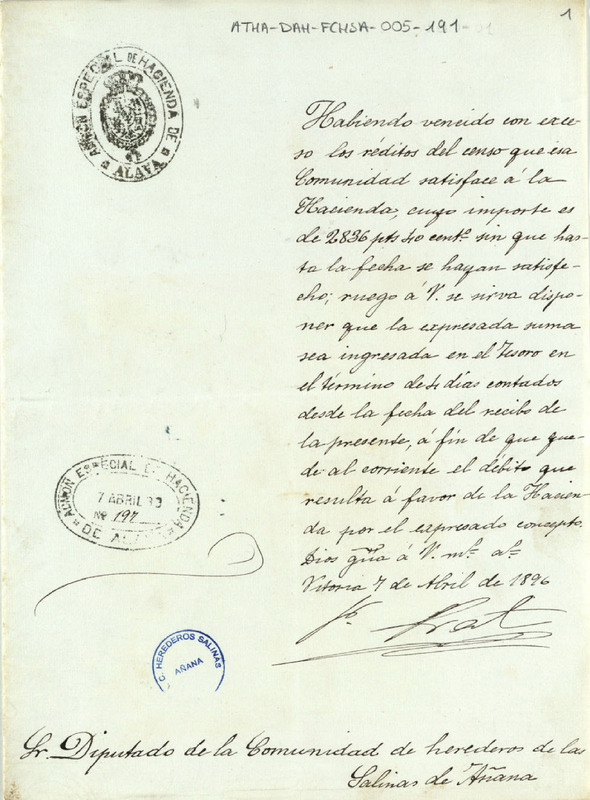 ATHA-DAH-FCHSA-005-191-01
1
ADMON ESPECIAL DE HACIENDA DE
ALAVA
Habiendo vencido con exce-
so los réditos del censo que esa
Comunidad satisface á la
Hacienda, cuyo importe es
de 2836 pts 40 centº sin que has-
ta la fecha se hayan satisfe-
cho; ruego á V. se sirva dispo-
ner que la expresada suma
sea ingresada en el Tesoro en
el término de 4 dias contados
desde la fecha del recibo de
la presente, á fin de que que-
de al corriente el débito que
resulta á favor de la Hacien-
da por el expresado concepto.
Dios gue á V. ms as
Vitoria 7 de Abril de 1896
ADMON ESPECIAL DE HACIENDA
7 ABRIL
Nº 197
DE ALAVA
C. HEREDEROS SALINAS
AÑANA
Sr. Diputado de la Comunidad de herederos de las
Salinas de Añana